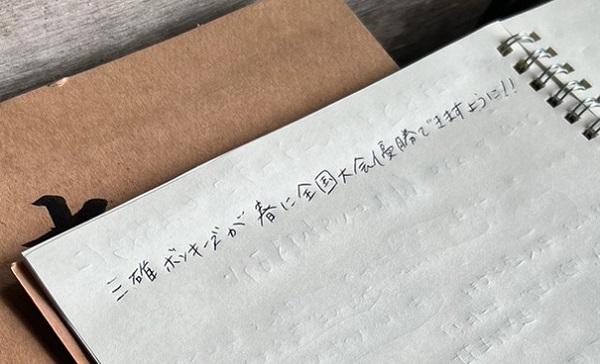 三碓ボッキーズが春に全国大会優勝できますように!!